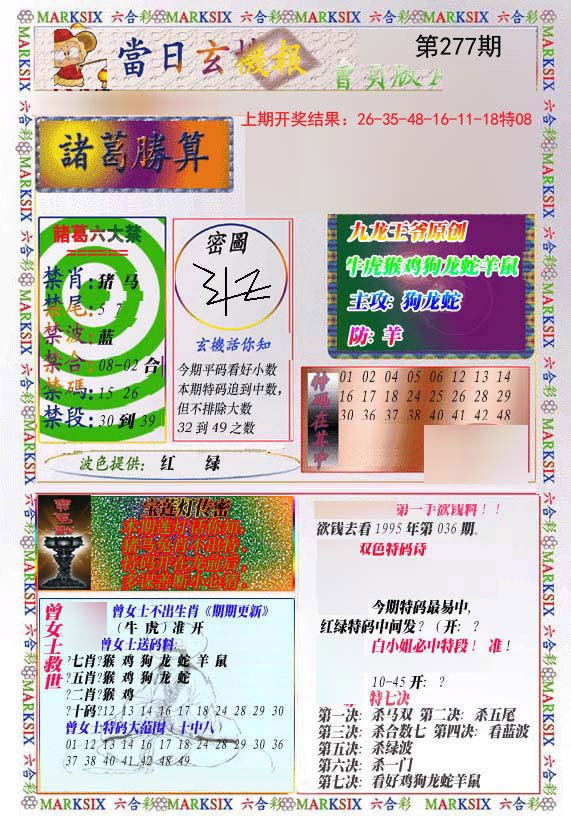 MARKSIX 六合彩 MARKSIX 六合彩 MARKSIX 六合彩 MARKSIX 六合彩 MARKSIX
當日玄機報
第277期
會員版
上期开奖结果：26-35-48-16-11-18特08
諸葛勝算
諸葛六大禁
======
禁肖:猪 马
禁尾:5 7
禁波:蓝
禁合:08-02 合
禁碼:15 26
禁段:30 到 39
密圖
玄機活你知
今期平码看好小数
本期特码追到中数,
但不排除大数
32 到 49 之数
九龙王爷原创
牛虎猴鸡狗龙蛇羊鼠
主攻: 狗龙蛇
防: 羊
特码在其中
01 02 04 05 06 12 13 14
16 17 18 24 25 27 28 29
30 36 37 38 40 41 42 48
波色提供: 红 绿
宝莲灯传密
本期莲灯话你知,
曾女士救世
曾女士不出生肖《期期更新》
(牛 虎) 准 开
曾女士送码料:
?七肖?猴 鸡 狗 龙 蛇 羊 鼠
?五肖?猴 鸡 狗 龙 蛇
?二肖?猴 鸡
?十码?12 13 14 16 17 18 24 28 29 30
曾女士特码大范围(十中八)
01 12 13 14 16 17 18 24 28 29 30 36
37 38 40 41 42 48 49
第一手欲钱料!!
欲钱去看 1995 年第 036 期.
双色特码诗
今期特码最易中,
红绿特码中间发? (开: ?
白小姐必中特段! 准!
10-45 开: ?
特七决
第一决: 杀马双 第二决: 杀五尾
第三决: 杀合数七 第四决: 看蓝波
第五决: 杀绿波
第六决: 杀一门
第七决: 看好鸡狗龙蛇羊鼠
MARKSIX 六合彩 MARKSIX 六合彩 MARKSIX 六合彩 MARKSIX 六合彩 MARKSIX